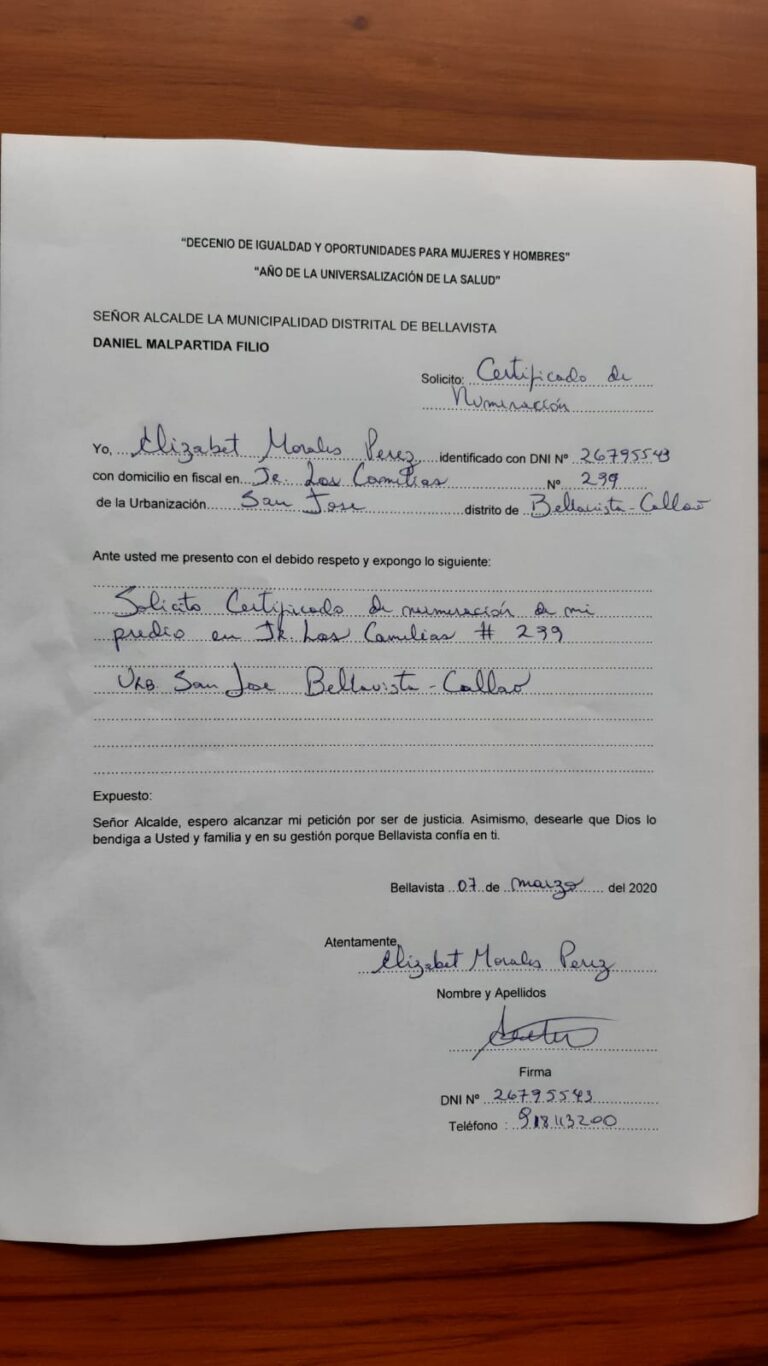 "DECENIO DE IGUALDAD Y OPORTUNIDADES PARA MUJERES Y HOMBRES"
"AÑO DE LA UNIVERSALIZACIÓN DE LA SALUD"
SEÑOR ALCALDE LA MUNICIPALIDAD DISTRITAL DE BELLAVISTA
DANIEL MALPARTIDA FILIO
Solicito: Certificado de
Numeración
Yo, Elizabet Morales Perez identificado con DNI Nº 26795543
con domicilio en fiscal en Jr. Las Camilias Nº 299
de la Urbanización San Jose distrito de Bellavista-Callao
Ante usted me presento con el debido respeto y expongo lo siguiente:
Solicito Certificado de numeración de mi
predio en Jr. Las Camilias # 299
Urb San Jose Bellavista-Callao
Expuesto:
Señor Alcalde, espero alcanzar mi petición por ser de justicia. Asimismo, desearle que Dios lo
bendiga a Usted y familia y en su gestión porque Bellavista confía en ti.
Bellavista 07 de marzo del 2020
Atentamente,
Elizabet Morales Perez
Nombre y Apellidos
Firma
DNI Nº 26795543
Teléfono : 918113200